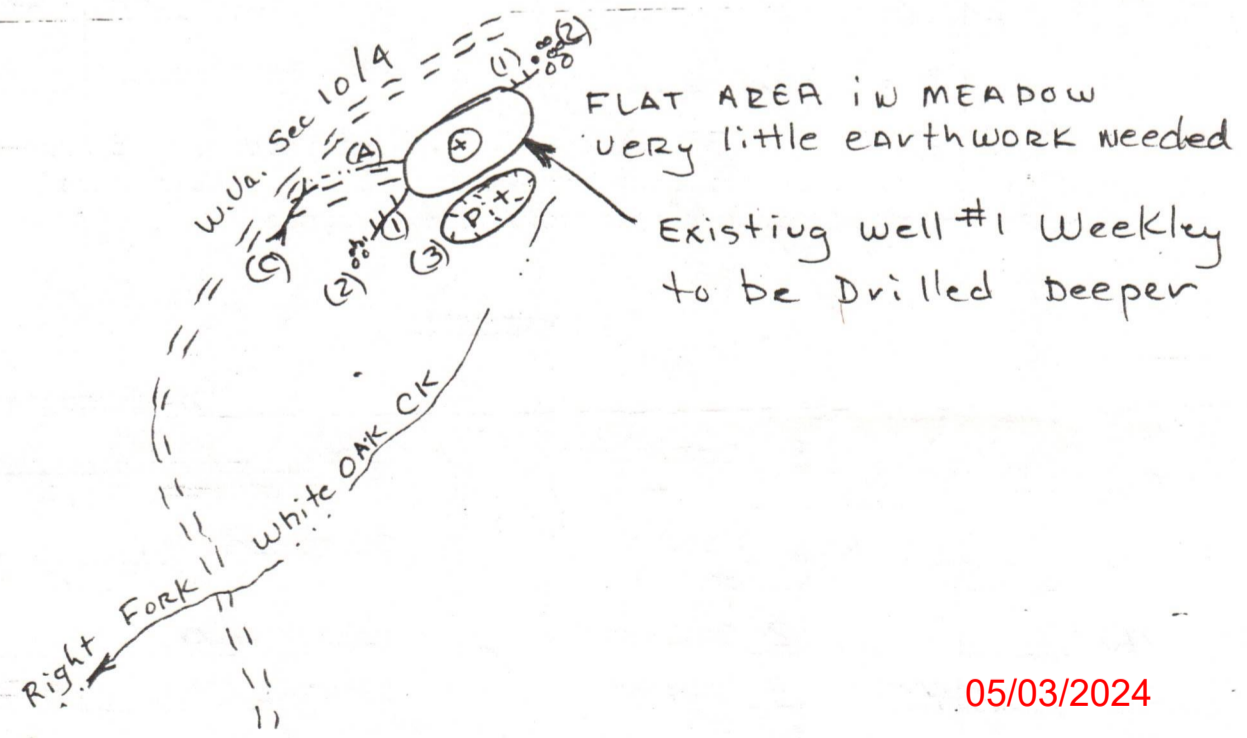 W.Va. Sec 10/4
(1)
(2)
(A)
FLAT AREA iN MEADOW
VERY little EARthWORK Needed
Existing well #1 Weekley
to be Drilled Deeper
Pit
(1)
(2)
(3)
(C)
Right FORK White OAK CK
05/03/2024